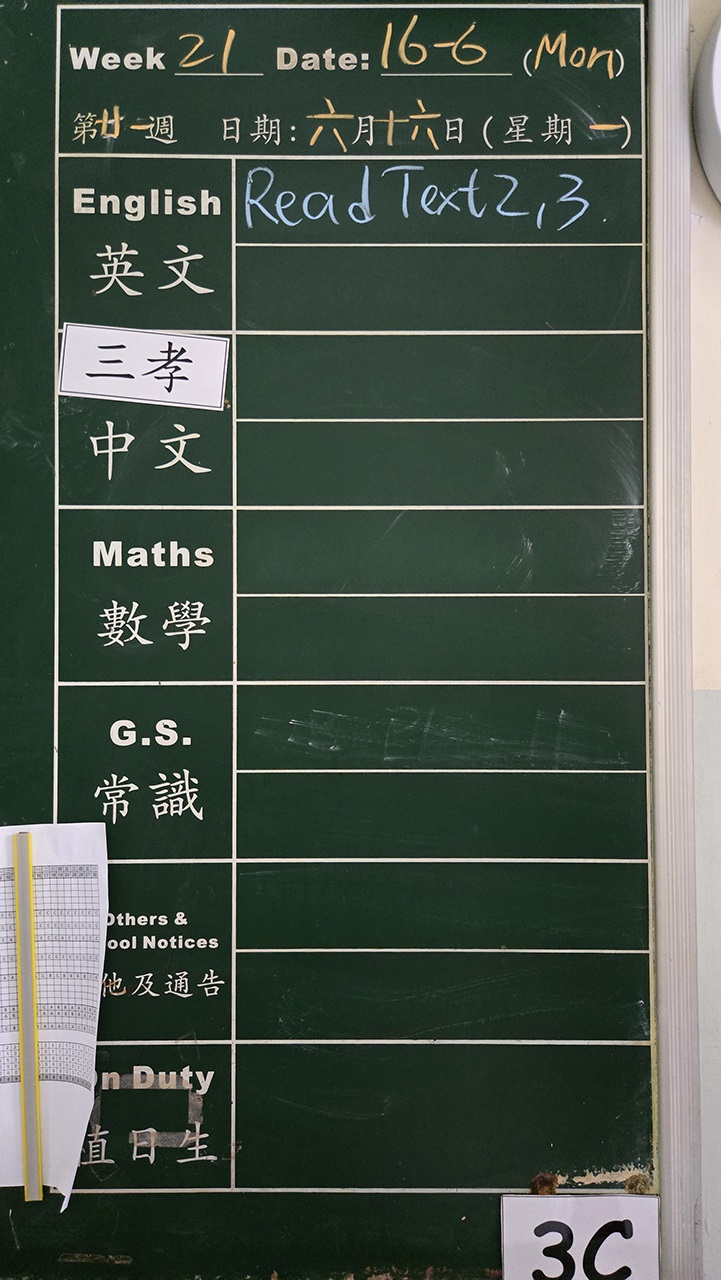 Week 21 Date: 16-6 (Mon)
第廿一週 日期: 六月十六日 (星期一)
English Read Text 2, 3.
英文
三孝
中文
Maths
數學
G.S.
常識
Others &
ool Notices
他及通告
On Duty
值日生
3C